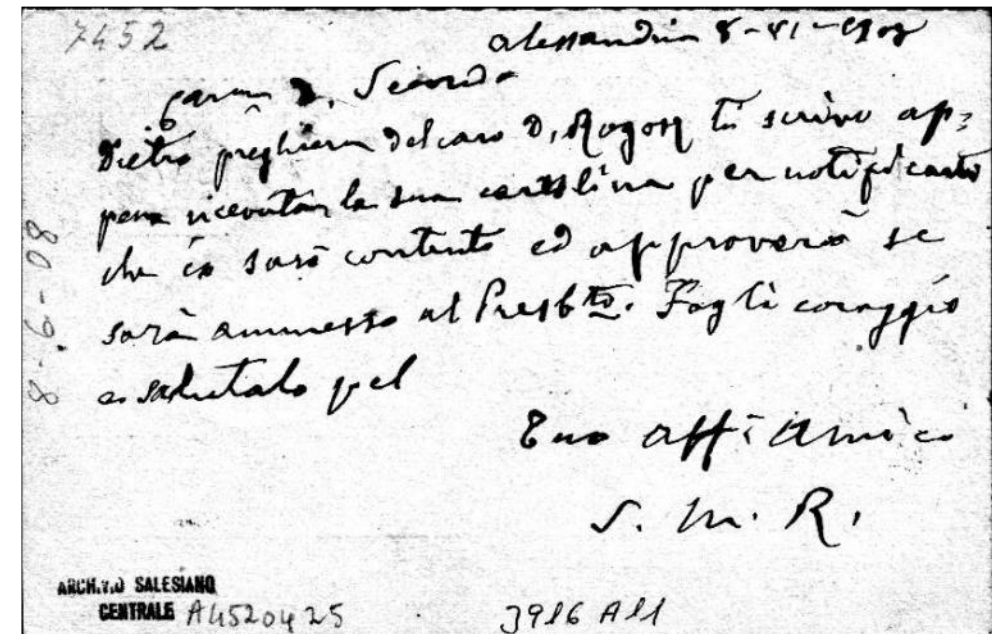 7452
Alessandria 8-VI-1908
Carmo D. Secondo
Dietro preghiera del caro D. Rogory ti scrivo ap=
pena ricevuta la sua cartolina per notificarti
che io sarò contento ed approverò se
sarà ammesso al Presbto. Fagli coraggio
e salutalo pel
Tuo aff. Amico
S. M. R.
8-6-08
ARCHIVIO SALESIANO
CENTRALE A4520425
3916 A11